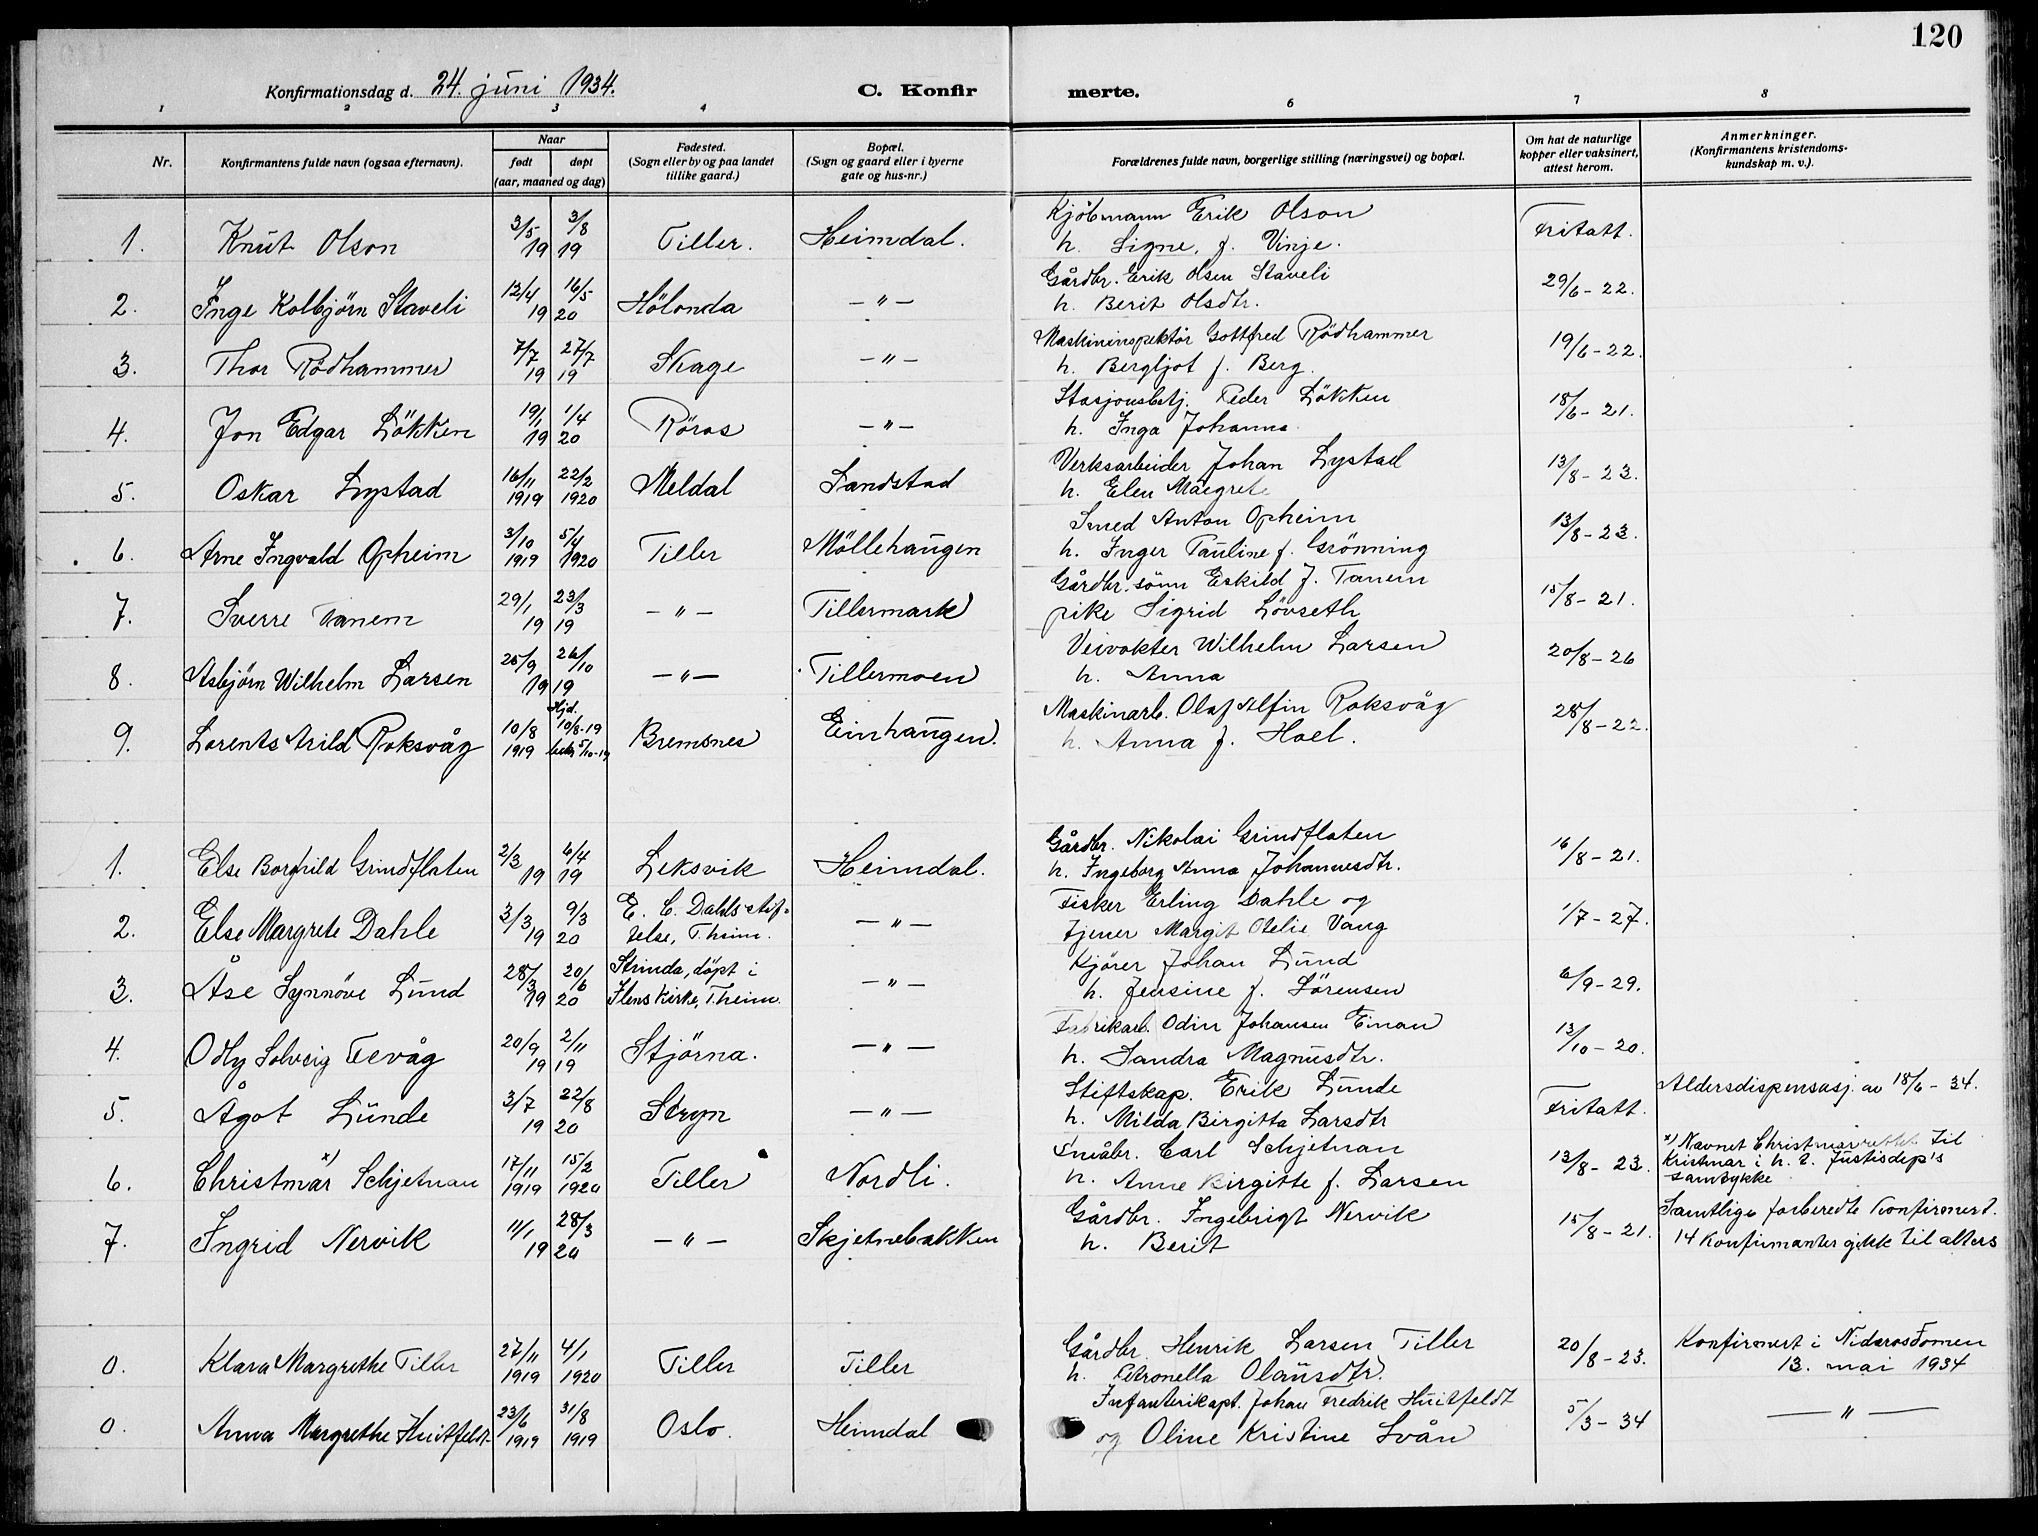 120
Konfirmationsdag d. 24. juni 1934. C. Konfirmerte.
1 2 3 4 6 7 8
Nr. Konfirmantens fulde navn (ogsaa efternavn). Naar født døpt (aar, maaned og dag) Fødested. (Sogn eller by og paa landet tillike gaard.) Bopæl. (Sogn og gaard eller i byerne gate og hus-nr.) Forældrenes fulde navn, borgerlige stilling (næringsvei) og bopæl. Om hat de naturlige kopper eller vaksinert, attest herom. Anmerkninger. (Konfirmantens kristendomskundskap m. v.).
1. Knut Olson 3/5 19 3/8 19 Tiller. Heimdal. Kjöbmann Erik Olson h. Signe, f. Vinje. Fritatt.
2. Inge Kolbjörn Staveli 12/4 19 16/5 20 Hölonda –"– Gårdbr. Erik Olsen Staveli h. Berit Olsdtr. 29/6-22.
3. Thor Rödhammer 7/7 19 27/7 19 Skage –"– Maskininspektör Gottfred Rödhammer h. Bergljot f. Berg. 19/6-22.
4. Jon Edgar Lökken 19/1 19 1/4 20 Röros –"– Stasjonsbetj. Peder Lökken h. Inga Johanna 18/6-21.
5. Oskar Lystad 16/11 1919 22/2 1920 Meldal Sandstad Verksarbeider Johan Lystad h. Elen Margrete 13/8-23.
6. Arne Ingvald Opheim 3/10 1919 5/4 1920 Tiller Möllehaugen Smed Anton Opheim h. Inger Pauline f. Grönning 13/8-23.
7. Sverre Tanem 29/1 19 23/3 19 –"– Tillermark Gårdbr. sönn Eskild J. Tanem pike Sigrid Lövseth 15/8-21.
8. Asbjörn Wilhelm Larsen 25/9 19 26/10 19 –"– Tillermoen Veivokter Wilhelm Larsen h. Anna 20/8-26
9. Lorents Arild Roksvåg 10/8 1919 Hjd. 10/8-19 5/10-19 Bremsnes Einhaugen. Maskinarb. Olaf Alfin Roksvåg h. Anna f. Hoel. 28/8-22.
1. Else Borghild Grindflaten 2/3 19 6/4 19 Leksvik Heimdal. Gårdbr. Nikolai Grindflaten h. Ingeborg Anna Johannesdtr. 16/8-21.
2. Else Margrete Dahle 3/3 19 9/3 20 E. C. Dahls stiftelse, T.heim. –"– Fisker Erling Dahle og tjener Margit Otelie Vang 1/7-27.
3. Åse Synnöve Lund 28/3 19 20/6 20 Strinda, döpt i Ilens kirke, T.heim. –"– Kjörer Johan Lund h. Jensine f. Sörensen 6/9-29.
4. Odly Solveig Fevåg 20/9 19 2/11 19 Stjörna. –"– Fabrikarb. Odin Johansen Einan h. Sandra Magnusdtr. 13/10-20.
5. Ågot Lunde 3/7 19 22/8 20 Stryn –"– Stiftskap. Erik Lunde h. Milda Birgitta Larsdtr Fritatt. Aldersdispensasj. av 18/6-34.
6. Christmar x) Schjetnan 17/11 1919 15/2 1920 Tiller Nordli. Småbr. Carl Schjetnan h. Anne Birgitte f. Larsen 13/8-23. x) Navnet Christmar rettet til Kristmar i h. t. Justisdep's samtykke
7. Ingrid Nervik 11/1 19 28/3 20 –"– Skjetnebakken Gårdbr. Ingebrigt Nervik h. Berit 15/8-21. Samtlige forberedte konfirmert. 14 konfirmanter gikk til alters
0. Klara Margrethe Tiller 27/11 1919 4/1 1920 Tiller Tiller Gårdbr. Henrik Larsen Tiller h. Petronella Olausdtr. 20/8-23. Konfirmert i Nidarosdomen 13. mai 1934
0. Anna Margrethe Huitfeldt 23/6 1919 31/8 1919 Oslo. Heimdal Infanterikapt. Johan Fredrik Huitfeldt og Oline Kristine Svån 5/3-34 –"–